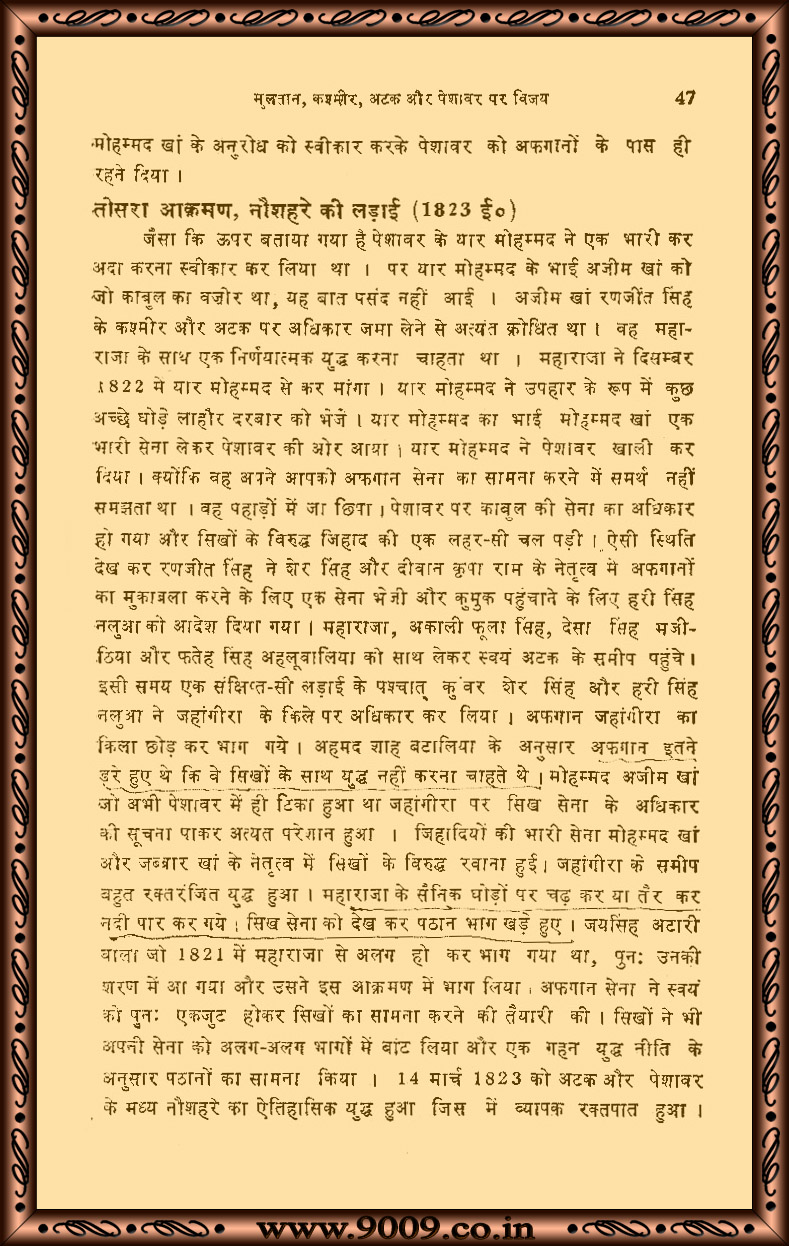 मुलतान, कश्मीर, अटक और पेशावर पर विजय 47
मोहम्मद खां के अनुरोध को स्वीकार करके पेशावर को अफगानों के पास ही
रहने दिया ।
तीसरा आक्रमण, नौशहरे की लड़ाई (1823 ई०)
जैसा कि ऊपर बताया गया है पेशावर के यार मोहम्मद ने एक भारी कर
अदा करना स्वीकार कर लिया था । पर यार मोहम्मद के भाई अजीम खां को
जो काबुल का वज़ीर था, यह बात पसंद नहीं आई । अजीम खां रणजीत सिंह
के कश्मीर और अटक पर अधिकार जमा लेने से अत्यंत क्रोधित था । वह महा-
राजा के साथ एक निर्णयात्मक युद्ध करना चाहता था । महाराजा ने दिसम्बर
1822 में यार मोहम्मद से कर मांगा । यार मोहम्मद ने उपहार के रूप में कुछ
अच्छे घोड़े लाहौर दरबार को भेजे । यार मोहम्मद का भाई मोहम्मद खां एक
भारी सेना लेकर पेशावर की ओर आया । यार मोहम्मद ने पेशावर खाली कर
दिया । क्योंकि वह अपने आपको अफगान सेना का सामना करने में समर्थ नहीं
समझता था । वह पहाड़ों में जा छिपा । पेशावर पर काबुल की सेना का अधिकार
हो गया और सिखों के विरुद्ध जिहाद की एक लहर-सी चल पड़ी । ऐसी स्थिति
देख कर रणजीत सिंह ने शेर सिंह और दीवान कृपा राम के नेतृत्व में अफगानों
का मुकाबला करने के लिए एक सेना भेजी और कुमुक पहुंचाने के लिए हरी सिंह
नलुआ को आदेश दिया गया । महाराजा, अकाली फूला सिंह, देसा सिंह मजी-
ठिया और फतेह सिंह अहलूवालिया को साथ लेकर स्वयं अटक के समीप पहुंचे ।
इसी समय एक संक्षिप्त-सी लड़ाई के पश्चात् कुंवर शेर सिंह और हरी सिंह
नलुआ ने जहांगीरा के किले पर अधिकार कर लिया । अफगान जहांगीरा का
किला छोड़ कर भाग गये । अहमद शाह बटालिया के अनुसार अफगान इतने
डरे हुए थे कि वे सिखों के साथ युद्ध नहीं करना चाहते थे । मोहम्मद अजीम खां
जो अभी पेशावर में ही टिका हुआ था जहांगीरा पर सिख सेना के अधिकार
की सूचना पाकर अत्यत परेशान हुआ । जिहादियों की भारी सेना मोहम्मद खां
और जब्बार खां के नेतृत्व में सिखों के विरुद्ध रवाना हुई । जहांगीरा के समीप
बहुत रक्तरंजित युद्ध हुआ । महाराजा के सैनिक घोड़ों पर चढ़ कर या तैर कर
नदी पार कर गये । सिख सेना को देख कर पठान भाग खड़े हुए । जयसिंह अटारी
वाला जो 1821 में महाराजा से अलग हो कर भाग गया था, पुन: उनकी
शरण में आ गया और उसने इस आक्रमण में भाग लिया । अफगान सेना ने स्वयं
को पुन: एकजुट होकर सिखों का सामना करने की तैयारी की । सिखों ने भी
अपनी सेना को अलग-अलग भागों में बांट लिया और एक गहन युद्ध नीति के
अनुसार पठानों का सामना किया । 14 मार्च 1823 को अटक और पेशावर
के मध्य नौशहरे का ऐतिहासिक युद्ध हुआ जिस में व्यापक रक्तपात हुआ ।
www.9009.co.in